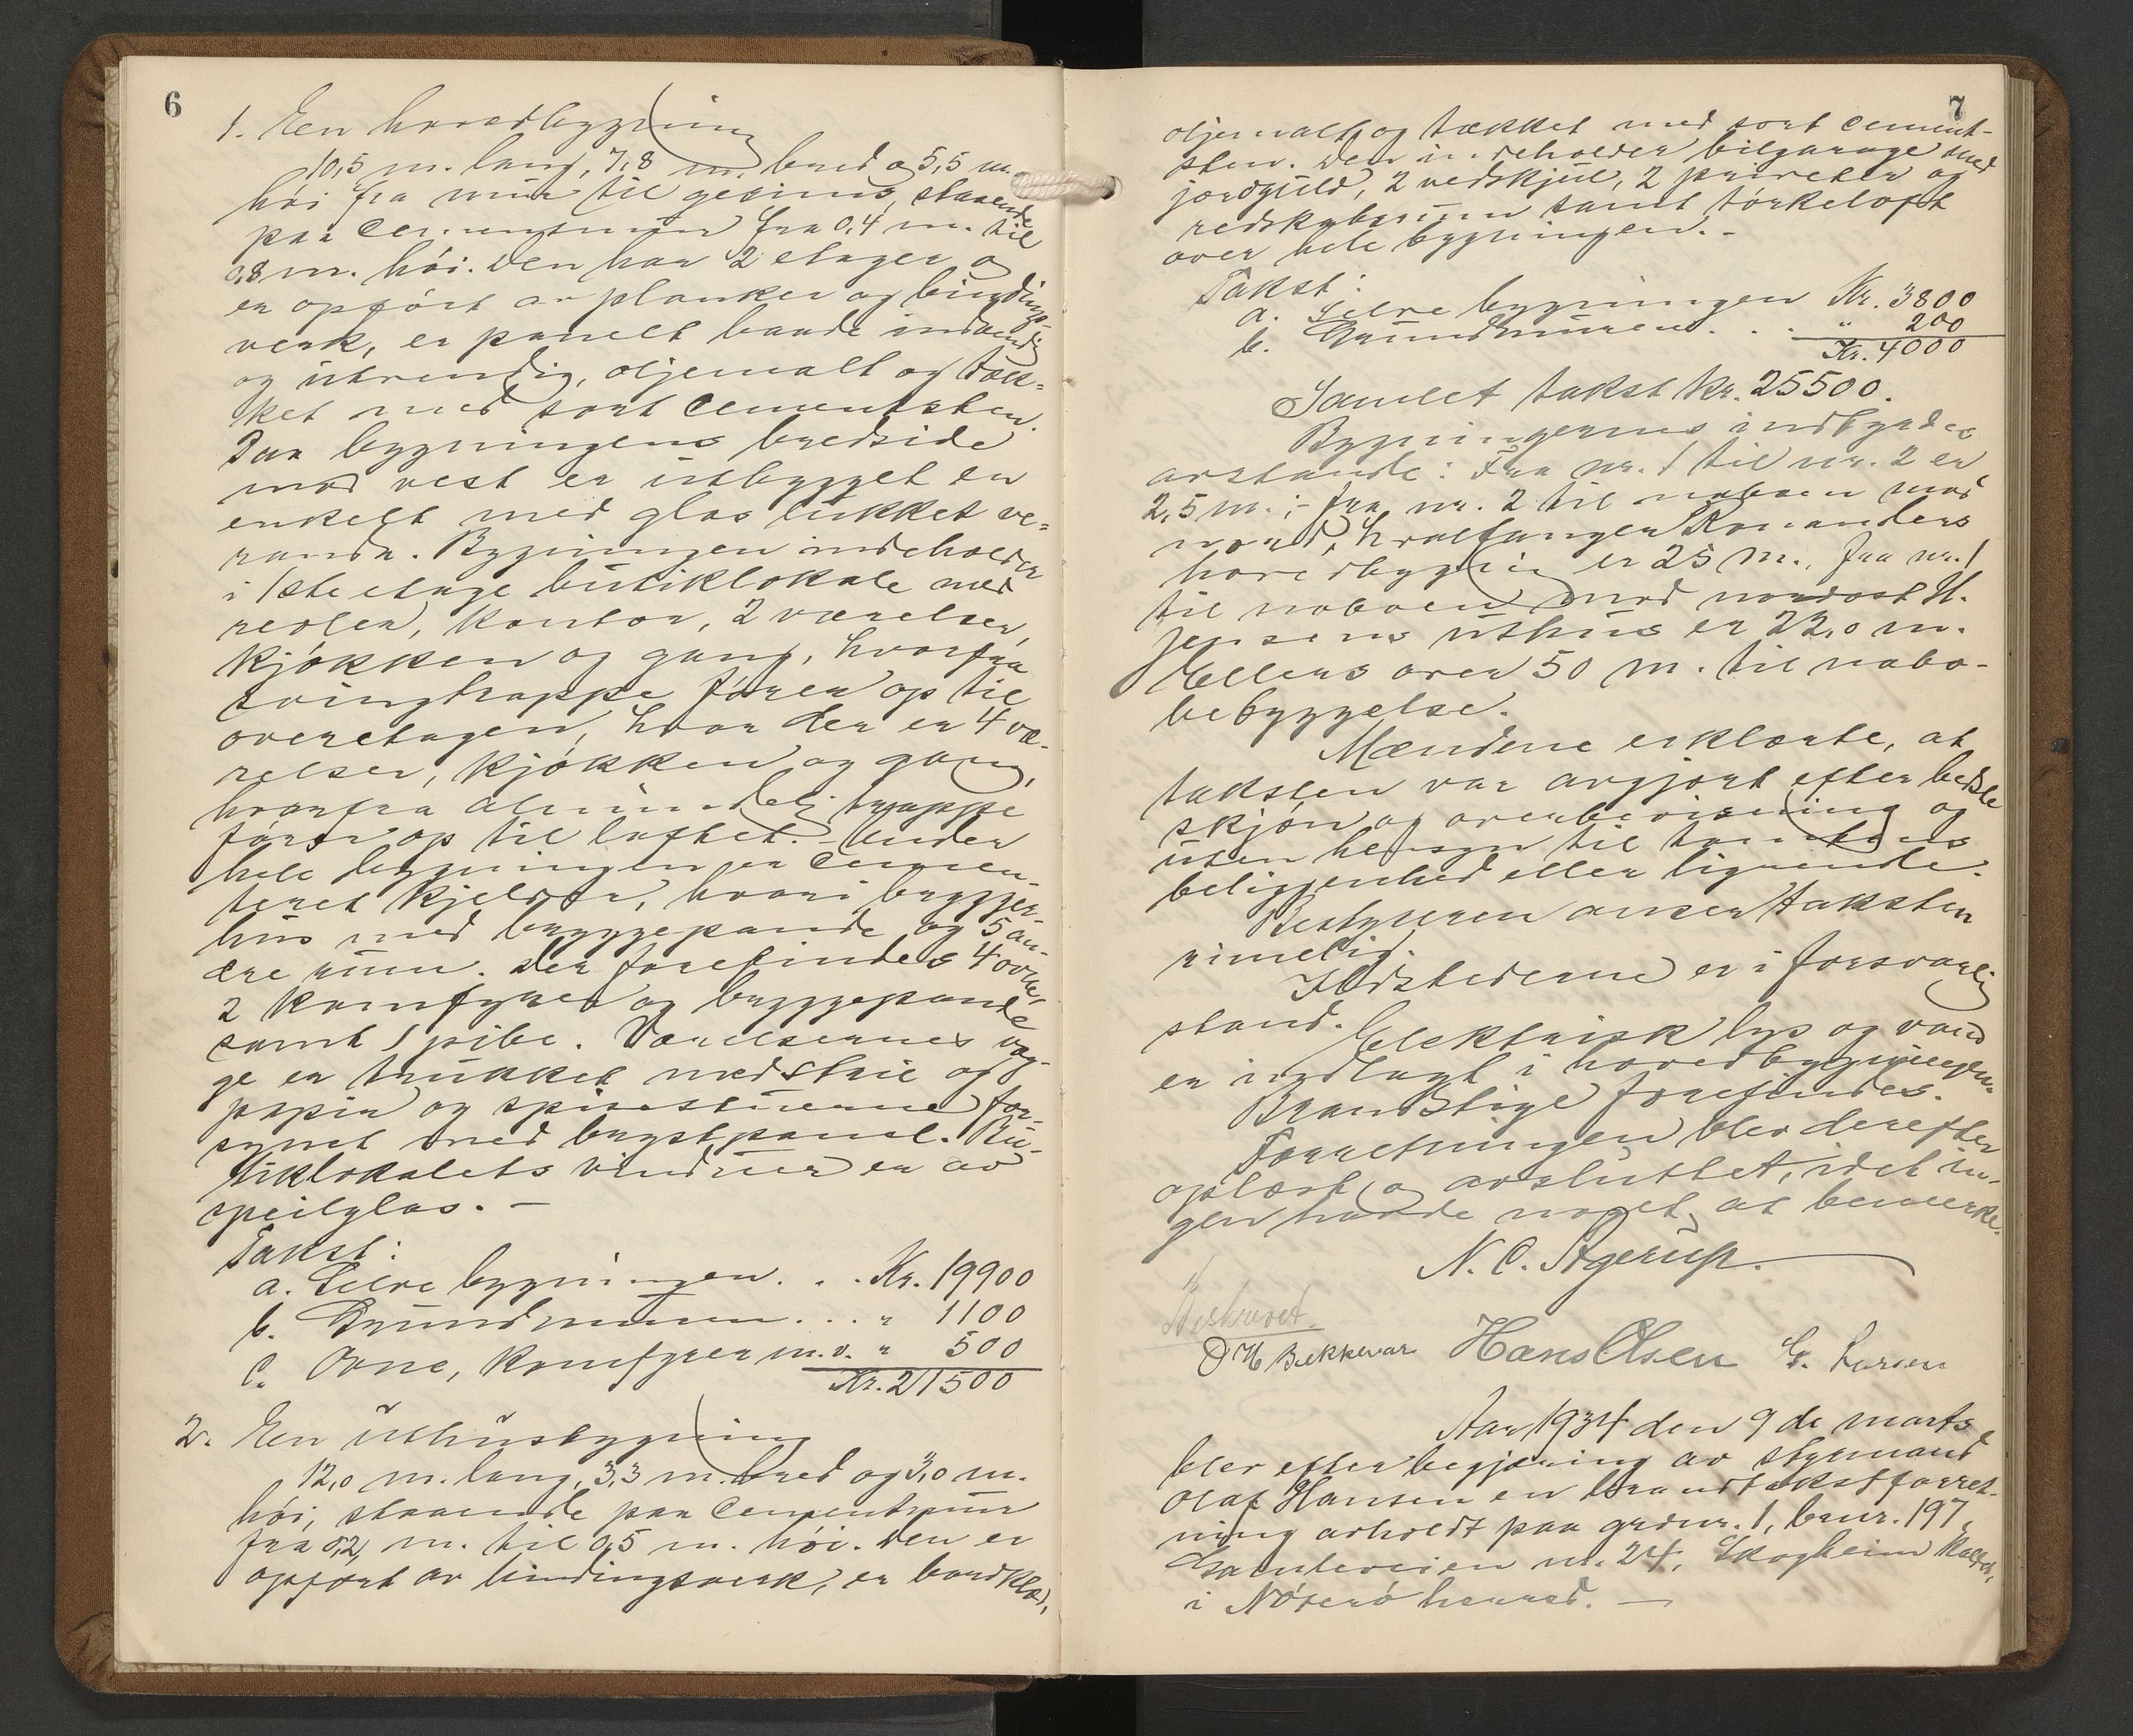 6
1. En hovedbygning
10,5 m. lang, 7,8 m. bred og 5,5 m.
höi fra mur til gesims, staaende
paa Cementmur fra 0,4 m. til
0,8 m. höi. Den har 2 etager og
er opfört av planker og bindings-
verk, er panelt baade indvendig
og utvendig, oljemalt og tæk-
ket med sort Cementsten.
Paa bygningens bredside
mod vest er utbygget en
enkelt med glas lukket ve-
randa. Bygningen indeholder
i 1ste etage butiklokale med
reoler, kontor, 2 værelser,
kjökken og gang, hvorfra
svingtrappe förer op til
overetagen, hvor der er 4 væ-
relser, kjökken og gang,
hvorfra almindelig trappe
förer op til loftet. Under
hele bygningen er Cemen-
teret kjelder, hvori brygger-
hus med bryggepande og 5 an-
dre rum. Der forefindes 4 ovne,
2 komfyrer og bryggepande
samt 1 pibe. Værelsernes væg-
ge er trukket med strie og
papir og spisestuerne for-
synet med brystpanel. Bu-
tiklokalets vinduer er av
speilglas. —
Takst:
a. Selve bygningen. . . Kr. 19900
b. Grundmuren. . . . " 1100
c. Ovne, komfyrer m.v. " 500
Kr. 21500
2. En uthusbygning
12,0 m. lang, 3,3 m. bred og 3,0 m.
höi, staaende paa Cementmur
fra 0,2 m. til 0,5 m. höi. Den er
opfört av bindingsverk, er bordklæd,
7
oljemalt og tækket med sort cement-
sten. Den indeholder bilgarage med
jordguld, 2 vedskjul, 2 priveter og
redskabsrum samt törkeloft
over hele bygningen. -
Takst:
a. Selve bygningen Kr. 3800
b. Grundmuren. . . . " 200
Kr. 4000
Samlet takst kr. 25500.
Bygningernes indbyrdes
avstande: Fra nr. 1 til nr. 2 er
2,5 m.; - fra nr. 2 til naboen mod
nord, hvalfanger Romanders
hovedbygning er 25 m., fra nr. 1
til naboen mod nordost H.
Jensens uthus er 22,0 m.
Ellers over 50 m. til nabo-
bebyggelse.
Mændene erklærte, at
taksten var avgjort efter bedste
skjön og overbevisning og
uten hensyn til tomtens
beliggenhed eller lignende.
Bestyreren anser taksten
rimelig.
Ildstederne er i forsvarlig
stand.
Elektrisk lys og vand
er indlagt i hovedbygningen.
Brandstige forefindes.
Forretningen blev derefter
oplæst og avsluttet, idet in-
gen havde noget at bemerke.
N. C. Agerup.
Beskrevet.
O H Bekkevar Hans Olsen G. Larsen
Aar 1934 den 9de marts
blev efter begjæring av styrmand
Olaf Hansen en brandtakstforret-
ning avholdt paa grdnr. 1, brnr. 197,
Gamleveien nr. 24, Skogheim
i Nöterö herred. —